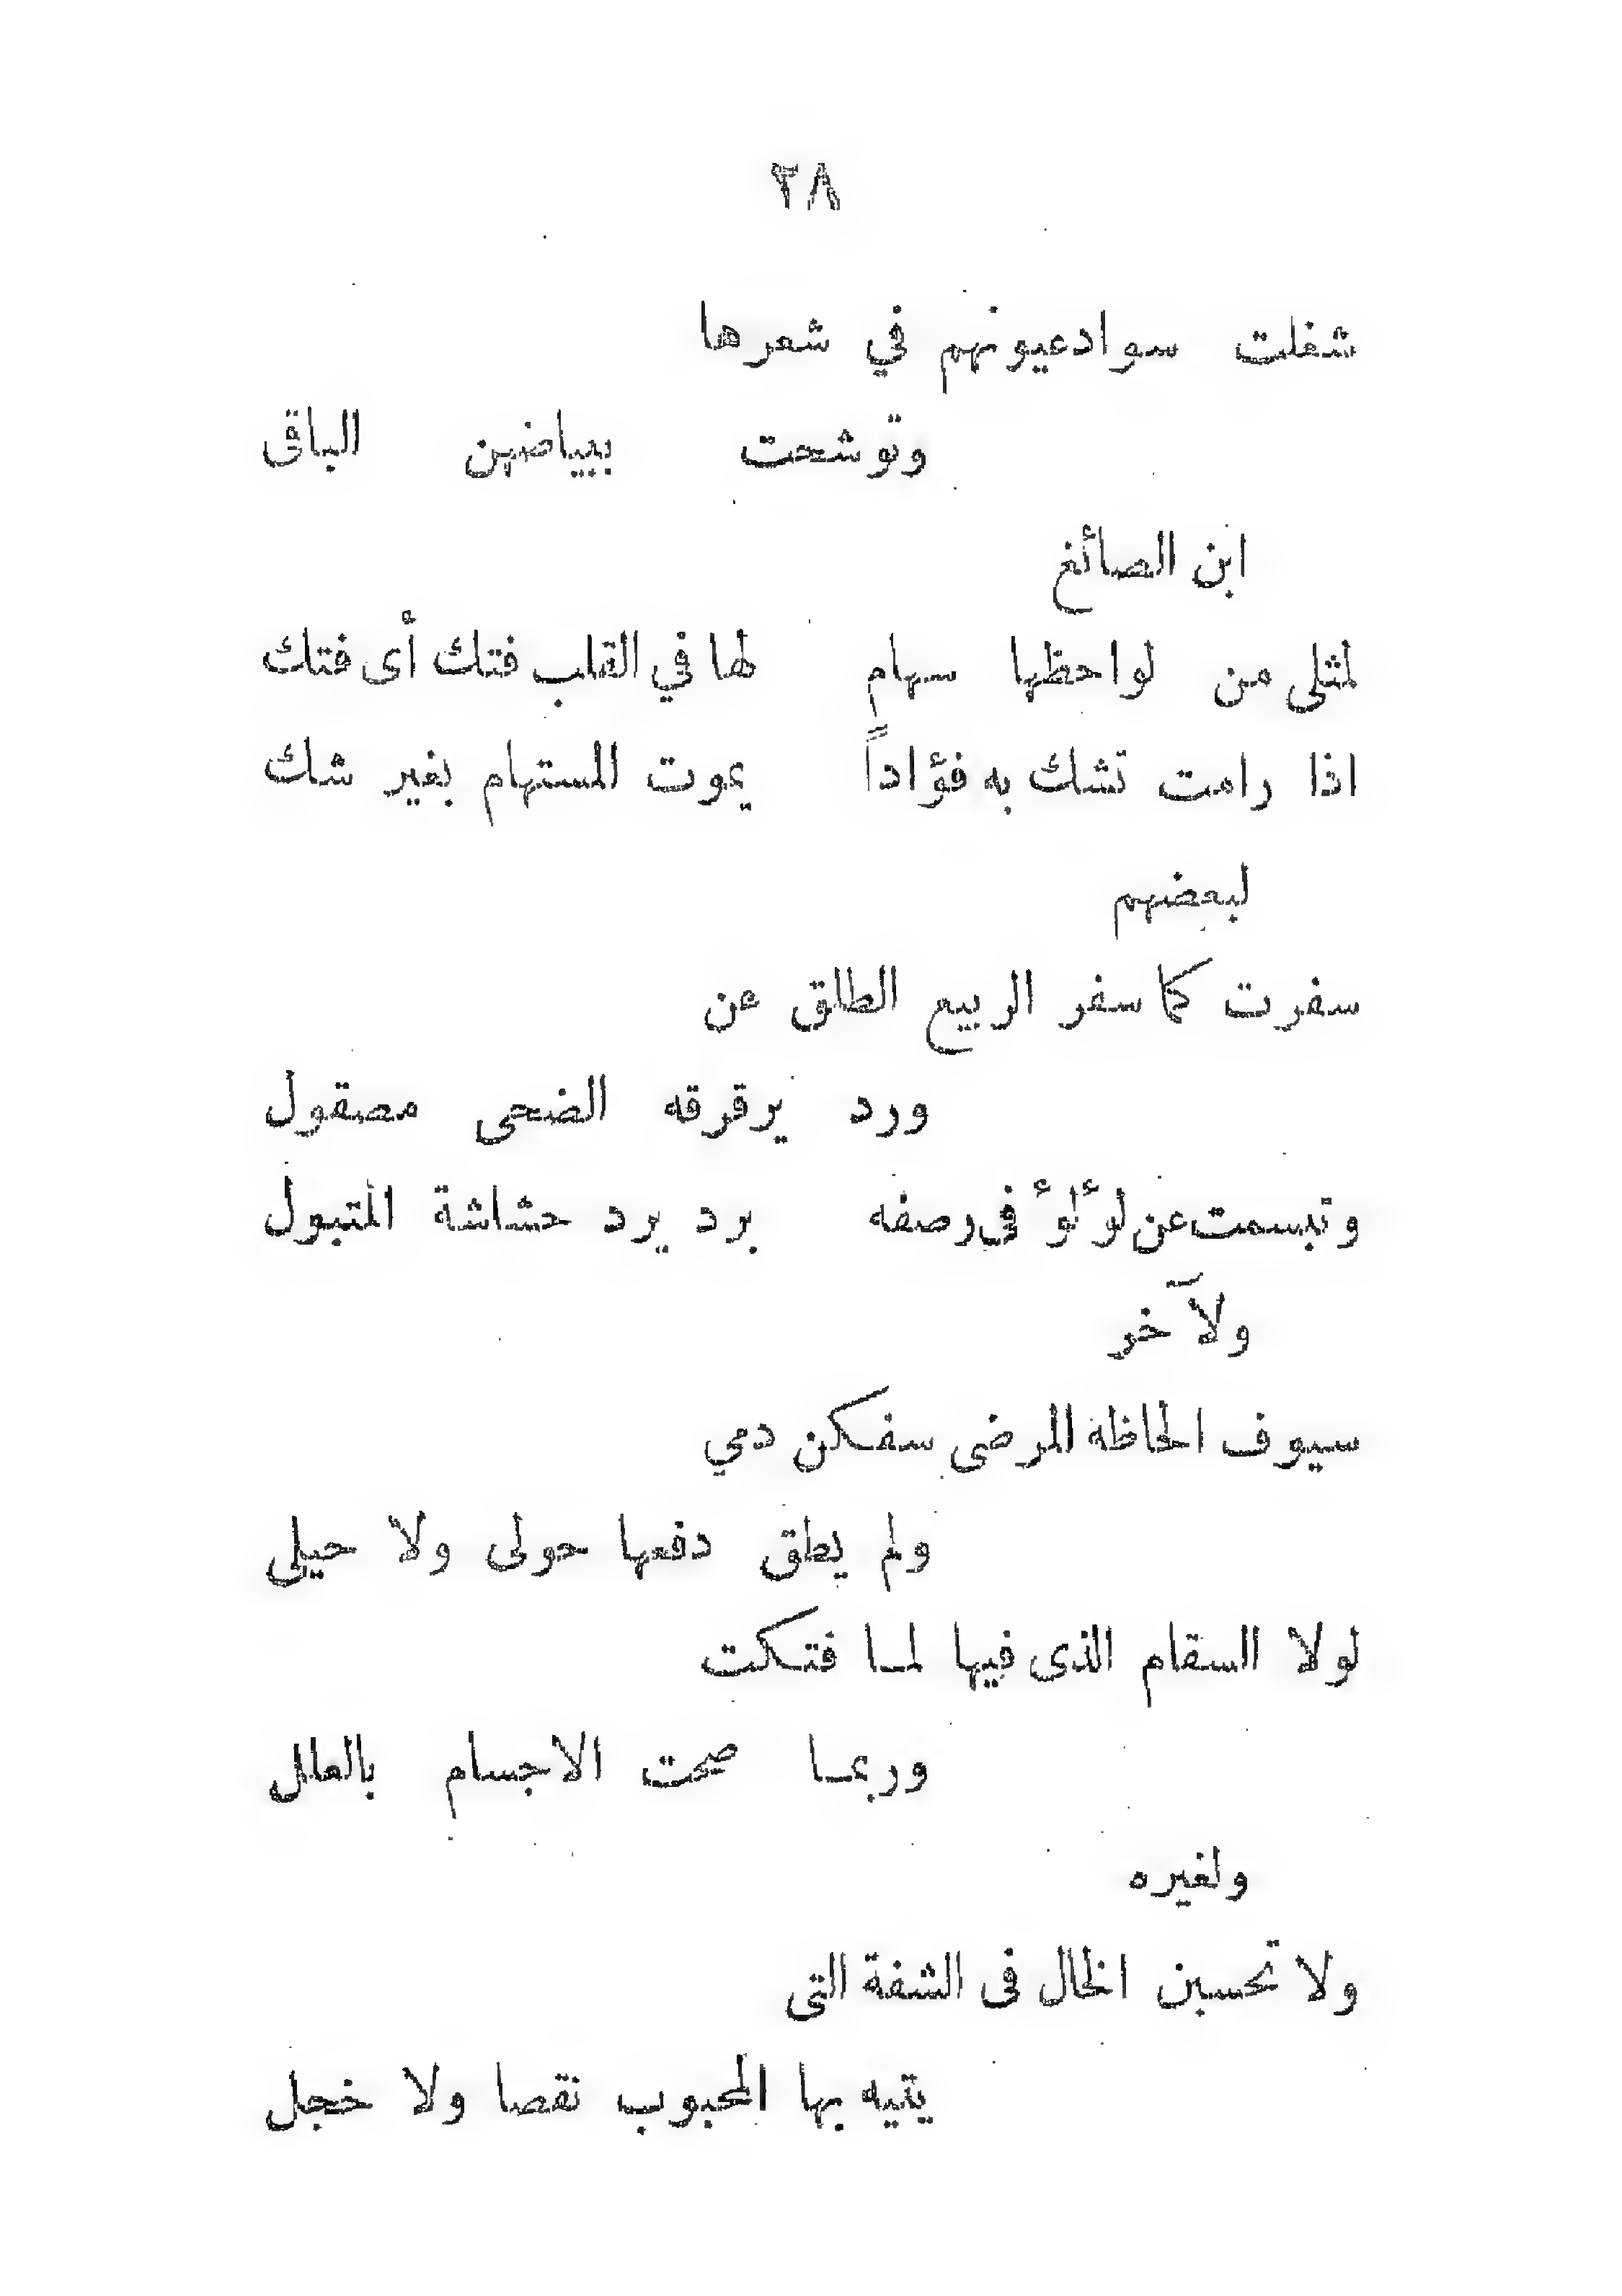 ٢٨
شغلت سواد عيونهم في شعرها
وتوشحت ببياضهن الباقى
ابن الصائغ
لمثلى من لواحظها سهام لها في القلب فتك أى فتك
اذا رامت تشك به فؤاداً يموت المستهام بغير شك
لبعضهم
سفرت كما سفر الربيع الطلق عن
ورد يرقرقه الضحى مصقول
وتبسمت عن لؤلؤ فى رصفه برد يرد حشاشة المتبول
ولآخر
سيوف الحاظه المرضى سفكن دمي
ولم يطق دفعها حولى ولا حيلى
لولا السقام الذى فيها لما فتكت
وربما صحت الاجسام بالعلل
ولغيره
ولا تحسبن الخال فى الشفة التى
يتيه بها المحبوب نقصا ولا خجل